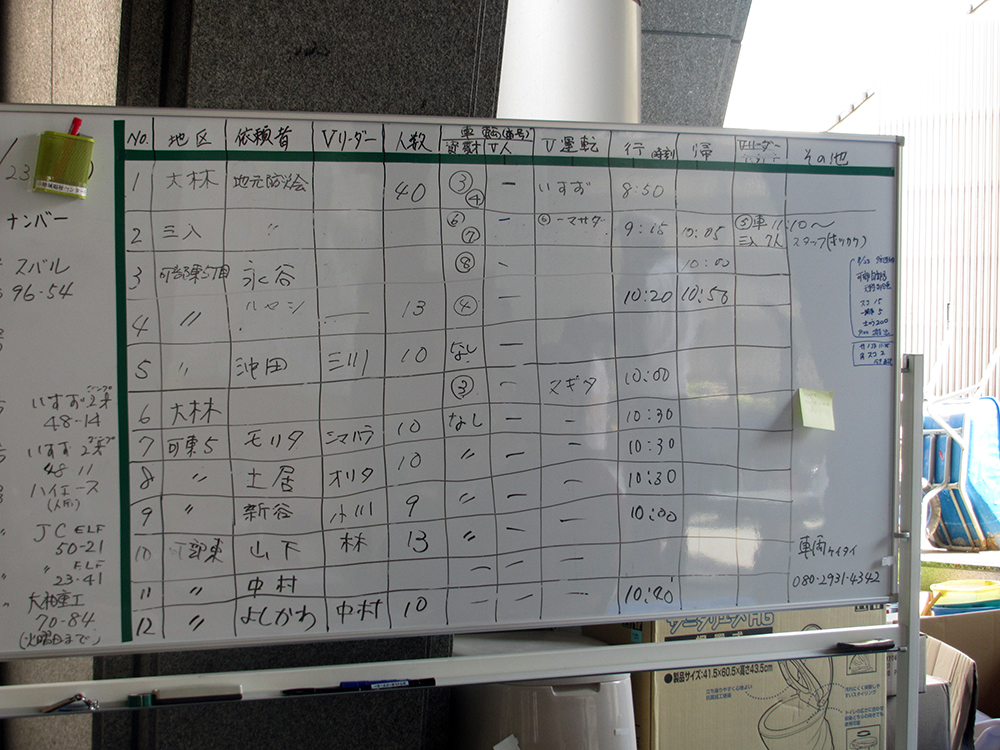 No. 地区 依頼者 Vリーダー 人数 車両(番号) 資材 V人 V運転 行 時刻 帰 Vリーダー その他
1 大林 地元防災会 40 ③ ④ ー いすず 8:50
2 三入 〃 ⑥ ⑦ ー マツダ 9:15 10:05 ⑤車 11:10〜
三入 7人 スタッフ
3 可部東5丁目 永谷 ⑧ 10:00
4 〃 13 ④ ー 10:20 10:50
5 〃 沖田 三川 10 なし ー
6 大林 ③ ー マギタ 10:00
7 可東5 モリタ シマハラ 10 なし ー ー 10:30
8 〃 土居 オリタ 10 〃 ー ー 10:30
9 〃 新谷 小川 9 〃 ー ー 10:30
10 可部東 山下 林 13 〃 ー ー 10:00
11 〃 中村 ー ー ー
12 〃 よしかわ 中村 10 ー ー ー 10:20
23
ナンバー
スバル
96-54
いすず
48-14
いすず
48 11
ハイエース
(人用)
JC ELF
50-21
〃 ELF
23-41
大和重工
70-84
(火曜日まで)
スコ 15
一輪車 5
土のう 200
車両ケイタイ
080-2931-4342
サニタリエースHG
●製品サイズ:41.5×60.5×高さ43.5cm